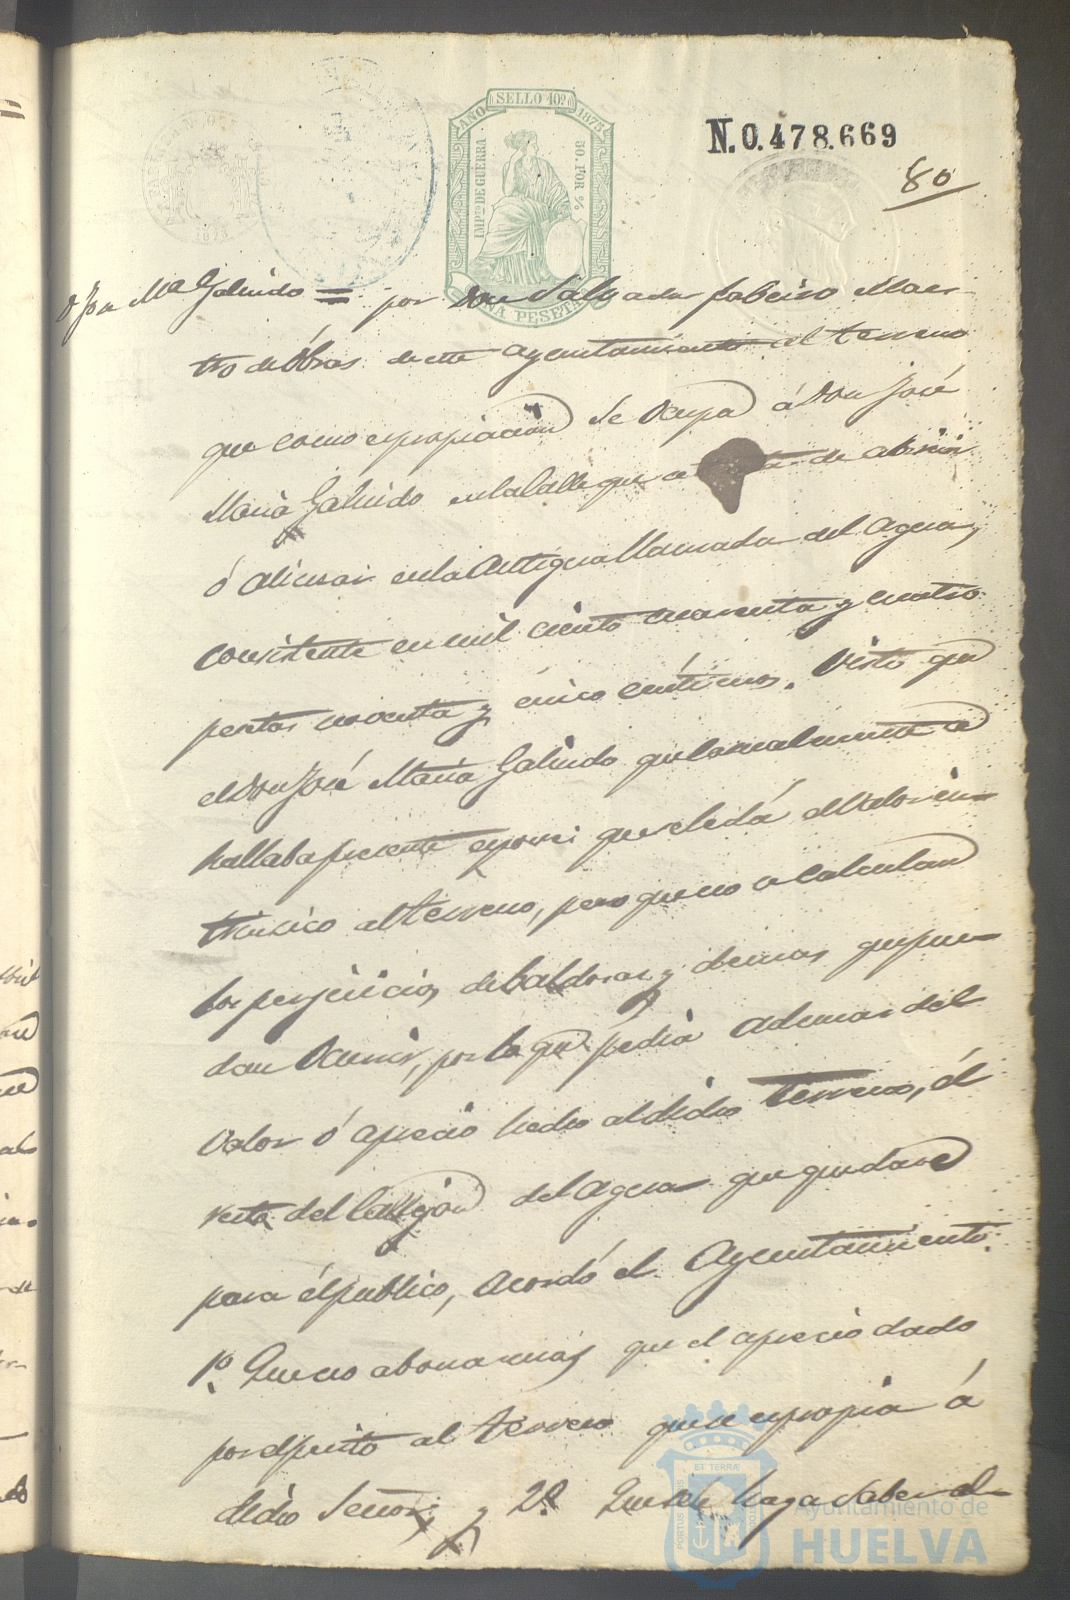 AÑO SELLO 10º 1875
IMPTO DE GUERRA 50 POR %
UNA PESETA
N.0.478.669
80
D Jose Mª Galindo = por Don Salvador Pabeiro Maes-
tro de Obras de este Ayuntamiento al terreno
que como expropiacion se ocupa á Don José
Maria Galindo en la Calle que a de abrirse
ó alinear en la Antigua llamada del Agua,
consistente en mil ciento cuarenta y cuatro
pesetas noventa y cinco centimos. Visto que
el Don José Maria Galindo que
hallaba presente que se le dá el valor in-
trinsico al terreno, pero que no se calculan
los perjuicios de baldosas y demas que pue-
dan Ocurrir, por lo que pedia ademas del
Valor ó aprecio hecho al dicho terreno, el
resto del Callejon del Agua que quedase
para él publico, acordó el Ayuntamiento:
1º. Que no abona mas que el aprecio dado
por el perito al terreno que se expropia á
dicho Señor; y 2º. Que se le haga saber al
PORTUS MARIS ET TERRÆ CUSTODIA
Ayuntamiento de
HUELVA